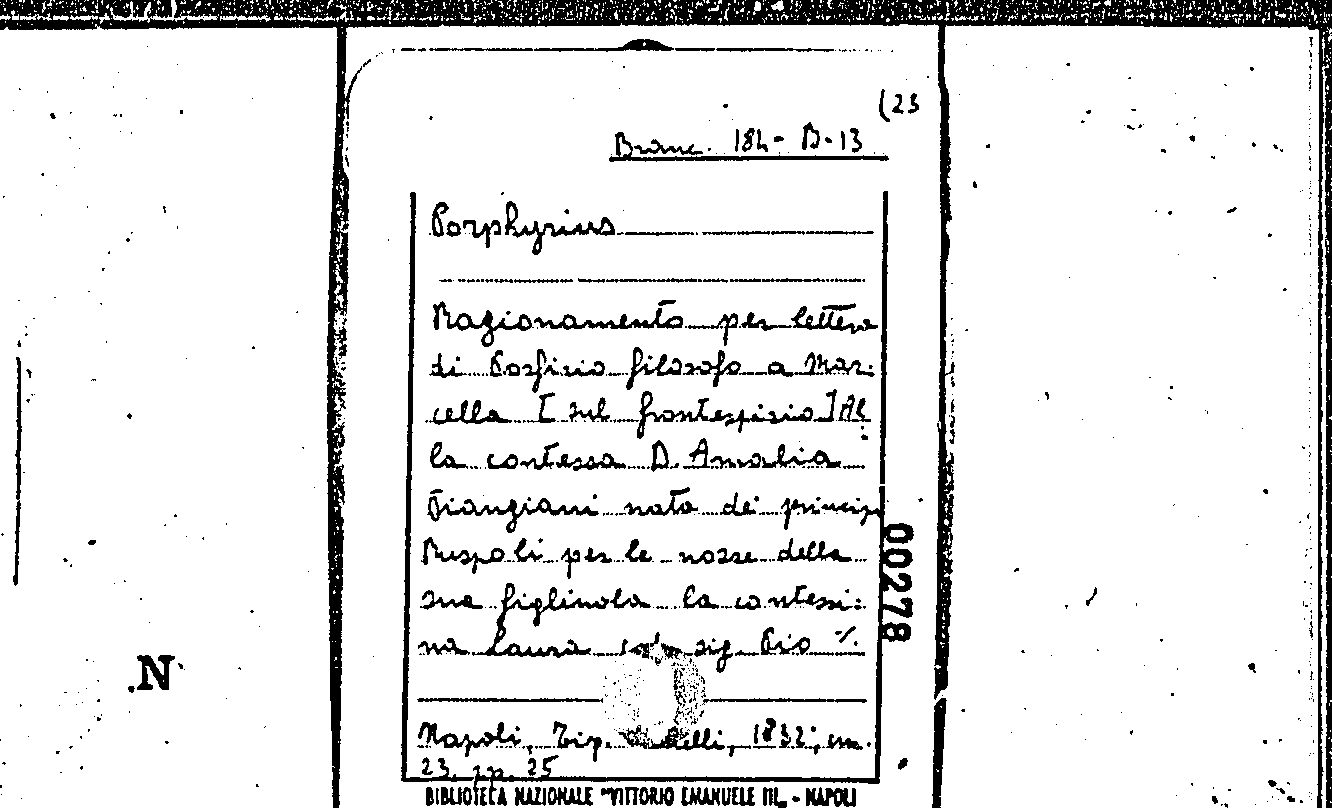 (23
Branc. 184-B-13
Porphyrius
Ragionamento per lettera
di Porfirio filosofo a Mar:
cella [sul frontespizio] Al
la contessa D. Amalia
nata dei principi
Ruspoli per le nozze della
sua figliuola la contessi:
na Laura col sig. Pio %.
Napoli, Tip. 1832; cm.
23, pp. 25
00278
.N
BIBLIOTECA NAZIONALE "VITTORIO EMANUELE III„ - NAPOLI